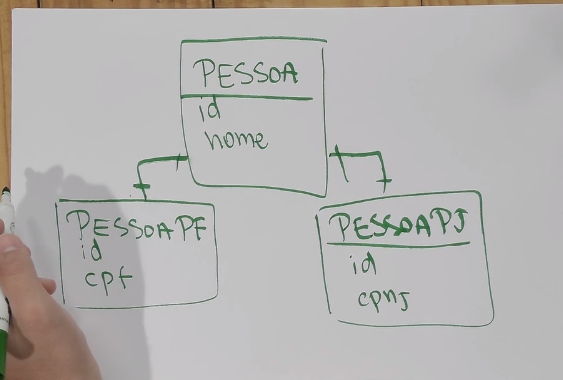 PESSOA
id
nome
PESSOAPF
id
cpf
PESSOAPJ
id
cpnj